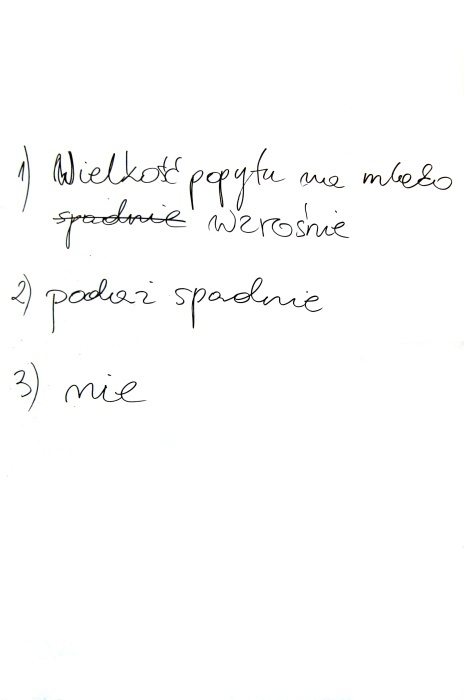 1) Wielkość popytu na mleko
spadnie wzrośnie
2) podaż spadnie
3) nie